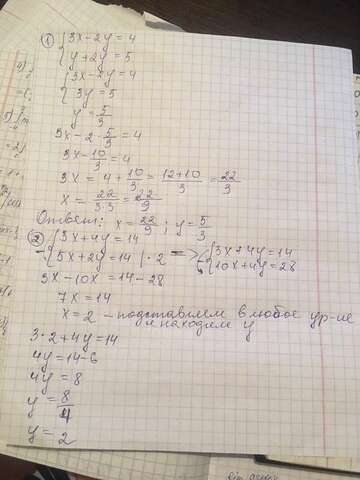 ① { 3x-2y=4
y+2y=5
{ 3x-2y=4
3y=5
y=5/3
3x-2·5/3=4
3x-10/3=4
3x=4+10/3=12+10/3=22/3
x=22/3·3=22/9
Ответ: x=22/9; y=5/3
② { 3x+4y=14
5x+2y=14 |·2 => { 3x+4y=14
10x+4y=28
3x-10x=14-28
7x=14
x=2 - подставляем в любое ур-ие
и находим y
3·2+4y=14
4y=14-6
4y=8
y=8/4
y=2